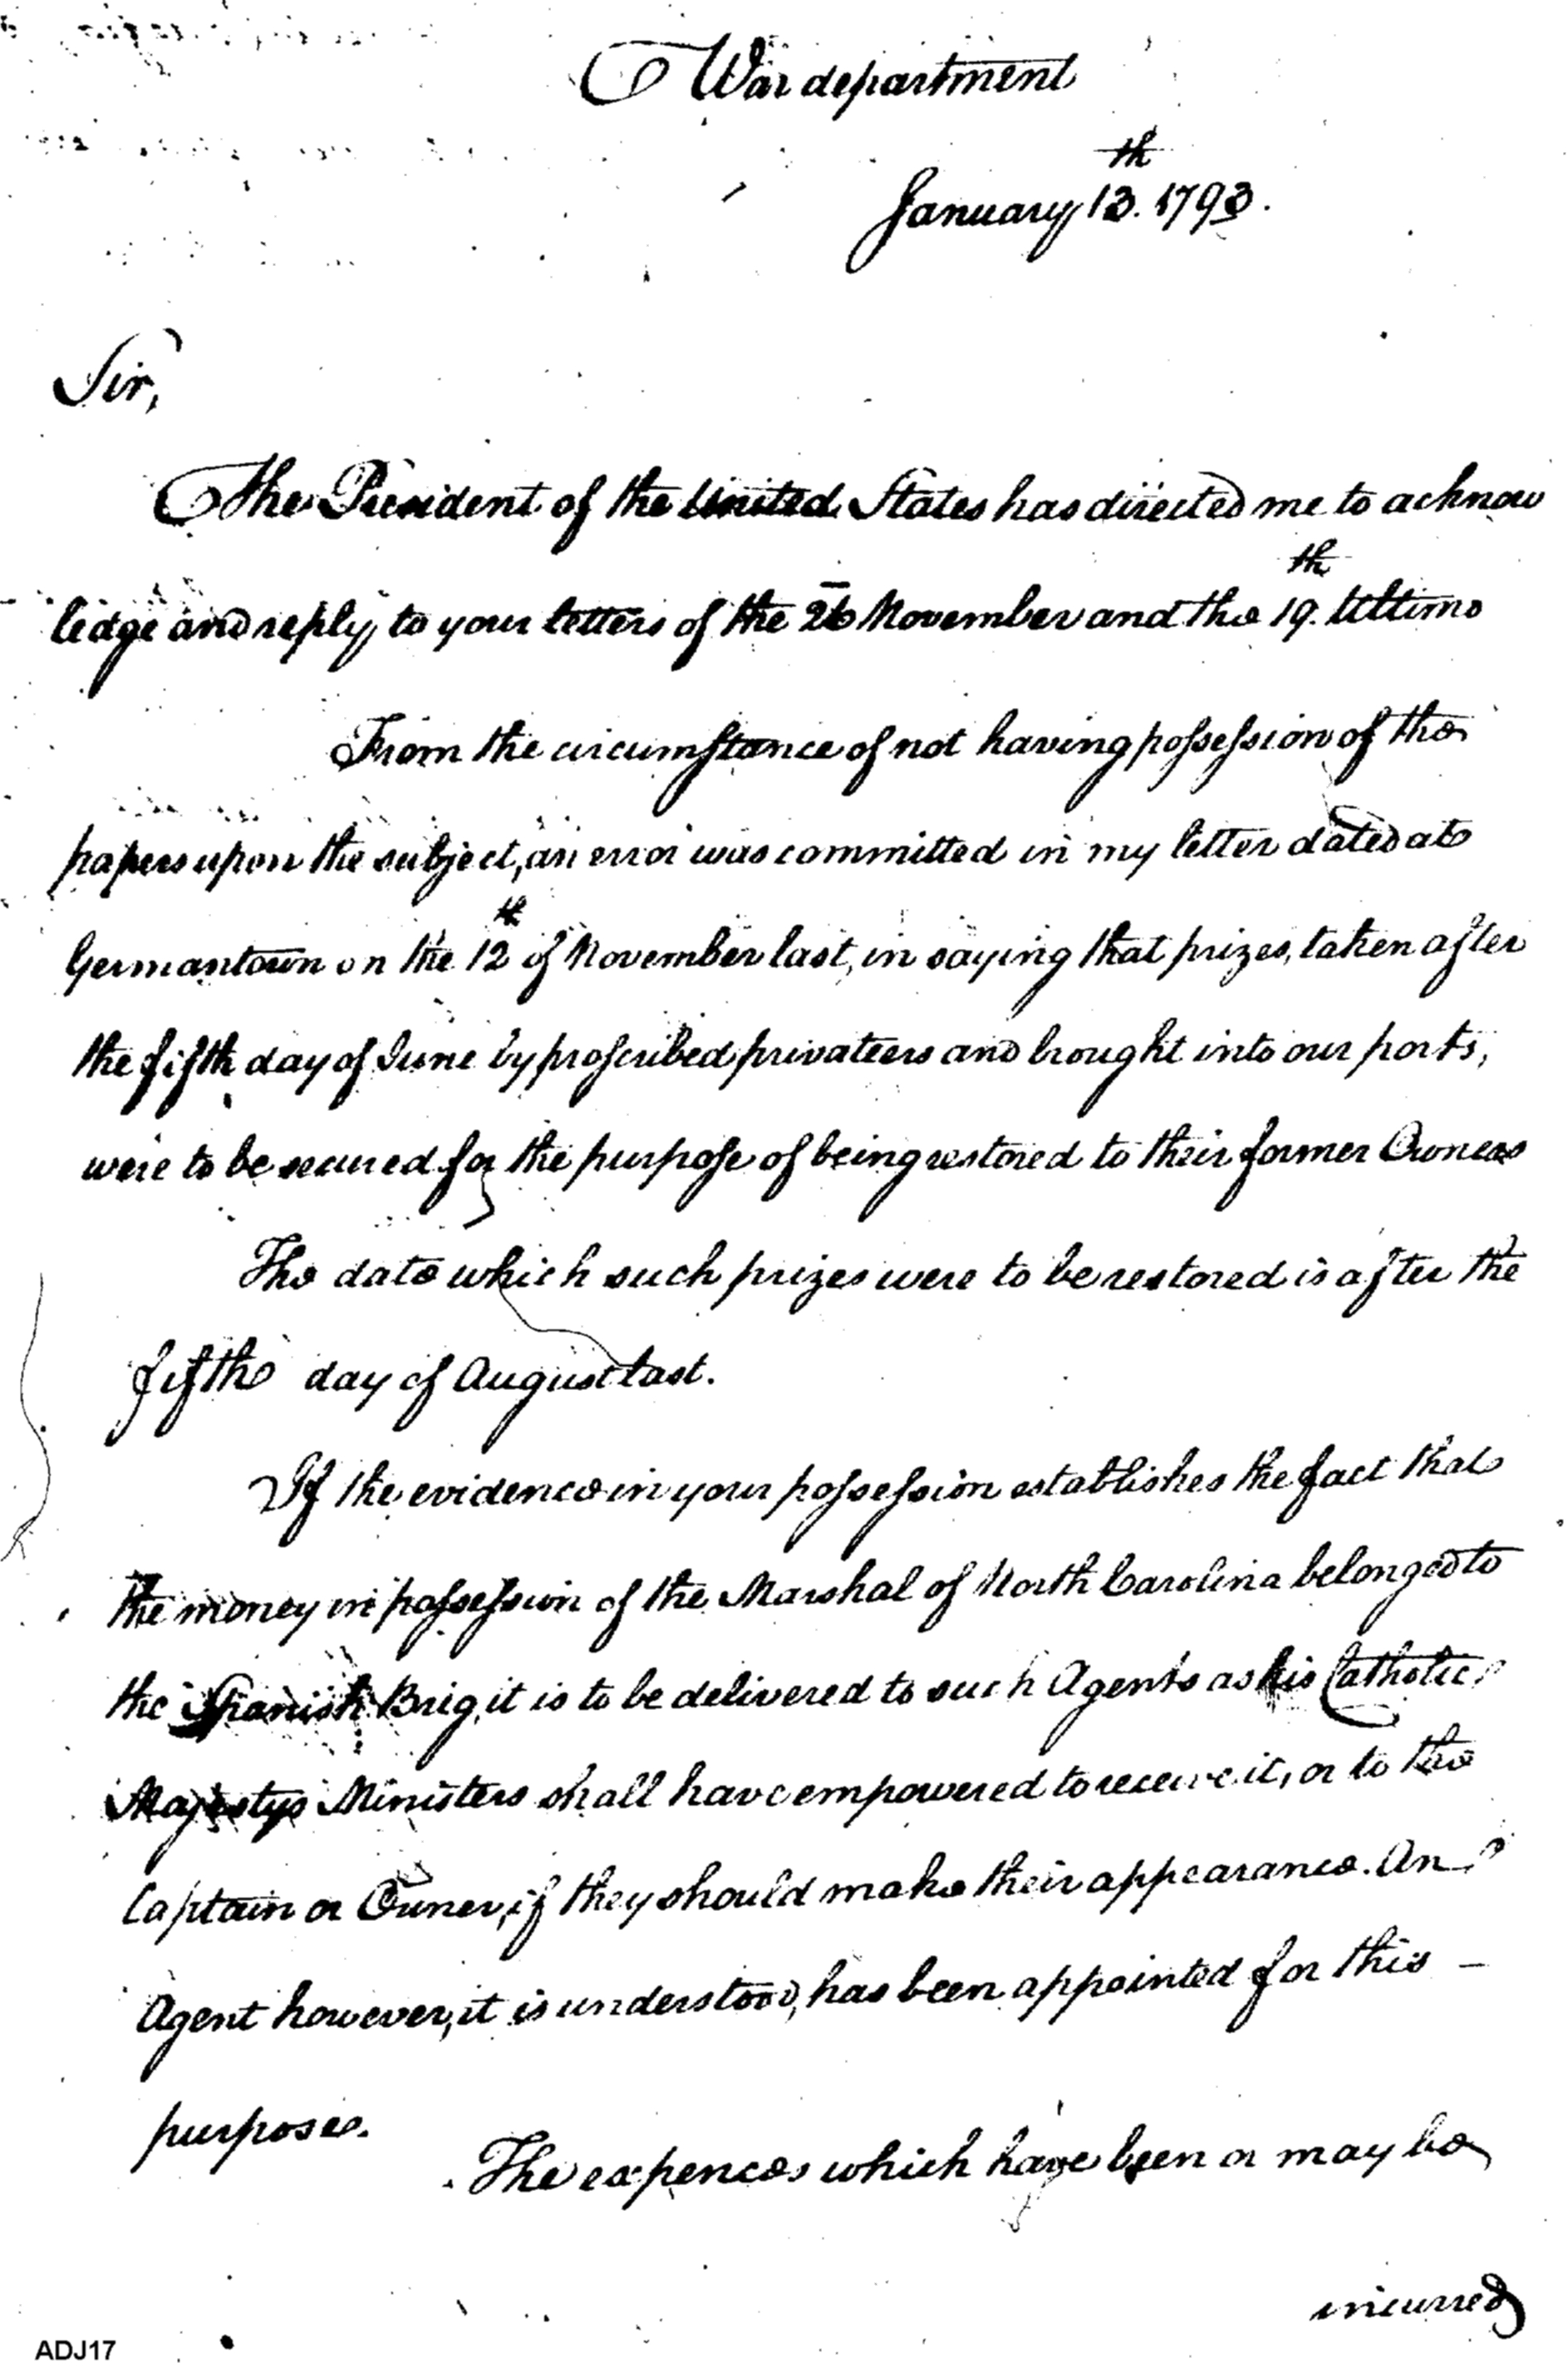 War department
January 13.th 1793.
Sir,
The President of the United States has directed me to acknow
ledge and reply to your letters of the 26 November and the 19.th Ultimo
From the circumstance of not having possession of the
papers upon the subject, an error was committed in my letter dated at
Germantown on the 12th of November last, in saying that prizes, taken after
the fifth day of June by proscribed privateers and brought into our ports,
were to be secured for the purpose of being restored to their former Owners
The date which such prizes were to be restored is after the
fifth day of August last.
If the evidence in your possession establishes the fact that
the money in possession of the Marshal of North Carolina belonged to
the Spanish Brig, it is to be delivered to such Agents as his Catholic
Majestys Ministers shall have empowered to receive it, or to the
Captain or Owner, if they should make their appearance. An
Agent however, it is understood, has been appointed for this –
purpose.
The expences which have been or may be
incurred
ADJ17